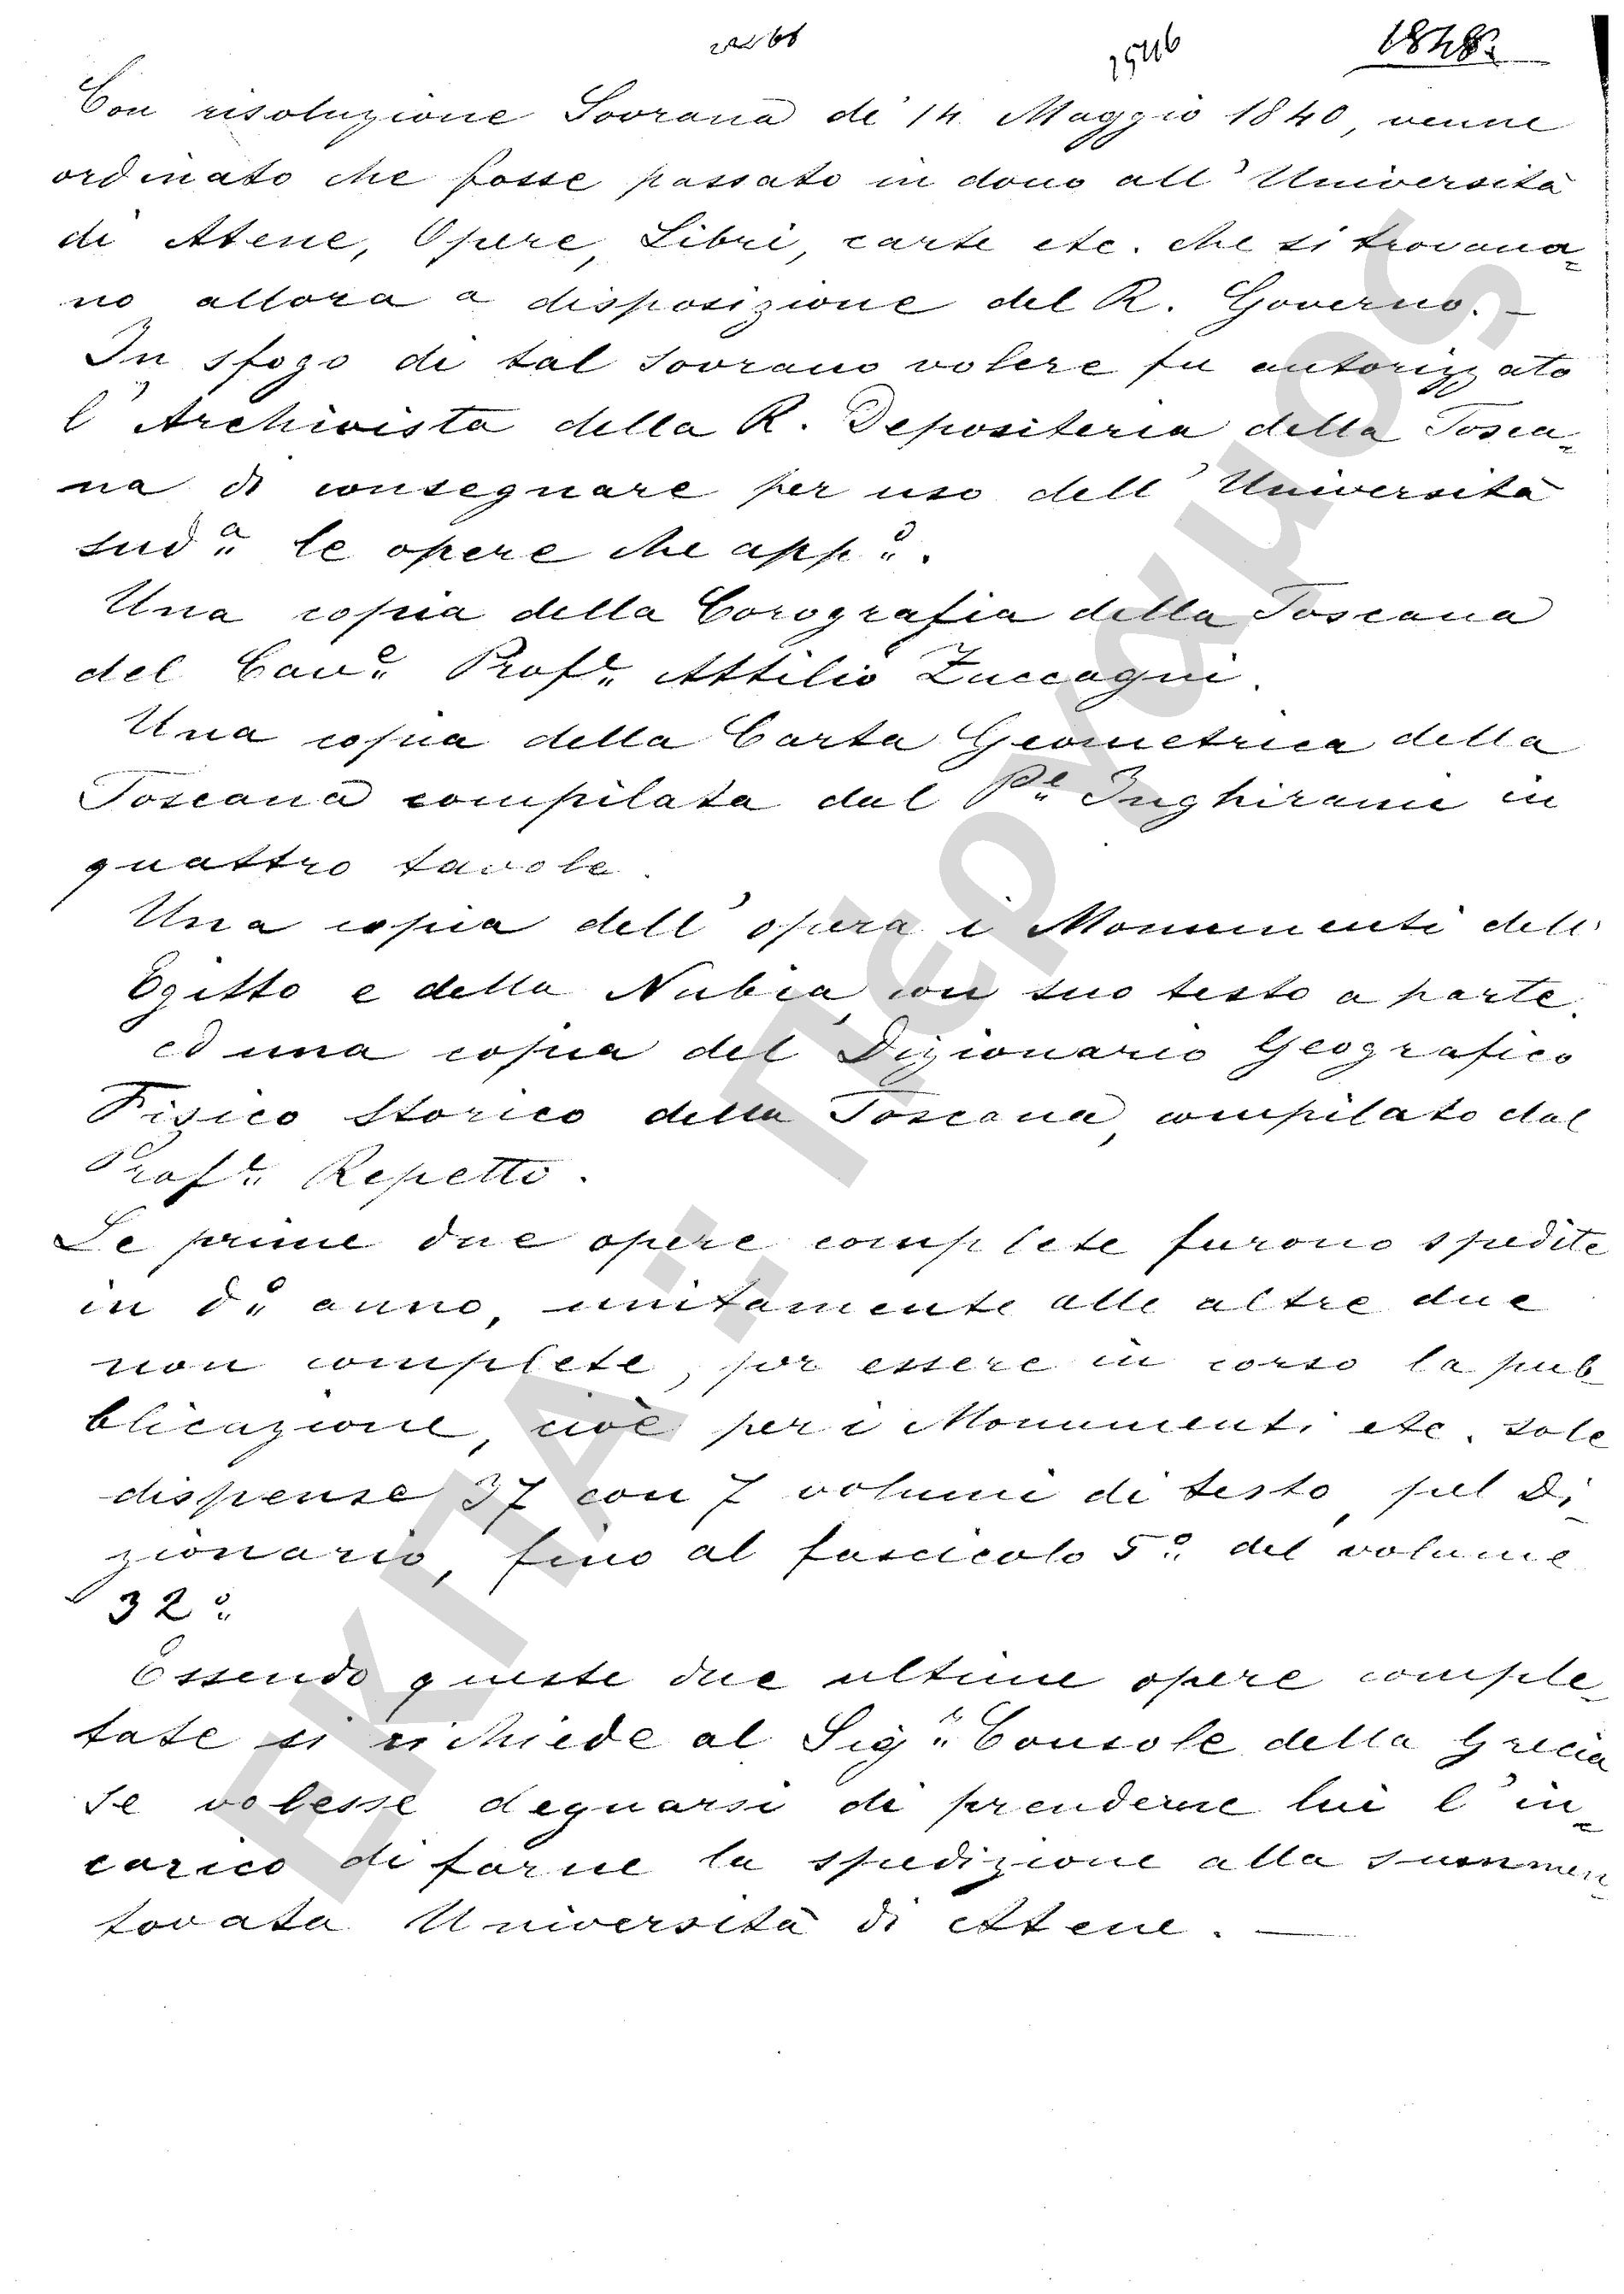 1546
1848.
Con risoluzione Sovrana di 14 Maggio 1840, venne
ordinato che fosse passato in dono all' Università
di Atene, Opere, Libri, carte etc. che si trovava-
no allora a disposizione del R. Governo. -
In sfogo di tal sovrano volere fu autorizzato
l'Archivista della R. Depositeria della Tosca-
na di consegnare per uso dell' Università
sudª le opere che appº.
Una copia della Corografia della Toscana
del Cavᵉ Profᵉ Attilio Zuccagni.
Una copia della Carta Geometrica della
Toscana compilata dal Pᵉ Inghirami in
quattro tavole.
Una copia dell' opera i Monumenti dell'
Egitto e della Nubia, con suo testo a parte.
ed una copia del Dizionario Geografico
Fisico Storico della Toscana, compilato dal
Profᵉ Repetti.
Le prime due opere complete furono spedite
in dº anno, unitamente alle altre due
non complete, per essere in corso la pub
blicazione, cioè per i Monumenti etc. sole
dispense 37 con 7 volumi di testo, pel Di-
zionario, fino al fascicolo 5º del volume
32º
Essendo queste due ultime opere comple-
tate si richiede al Sigʳ Console della Grecia
se volesse degnarsi di prenderne lui l'in-
carico di farne la spedizione alla summen
tovata Università di Atene. —
ΕΚΠΑ: Πέργαμος